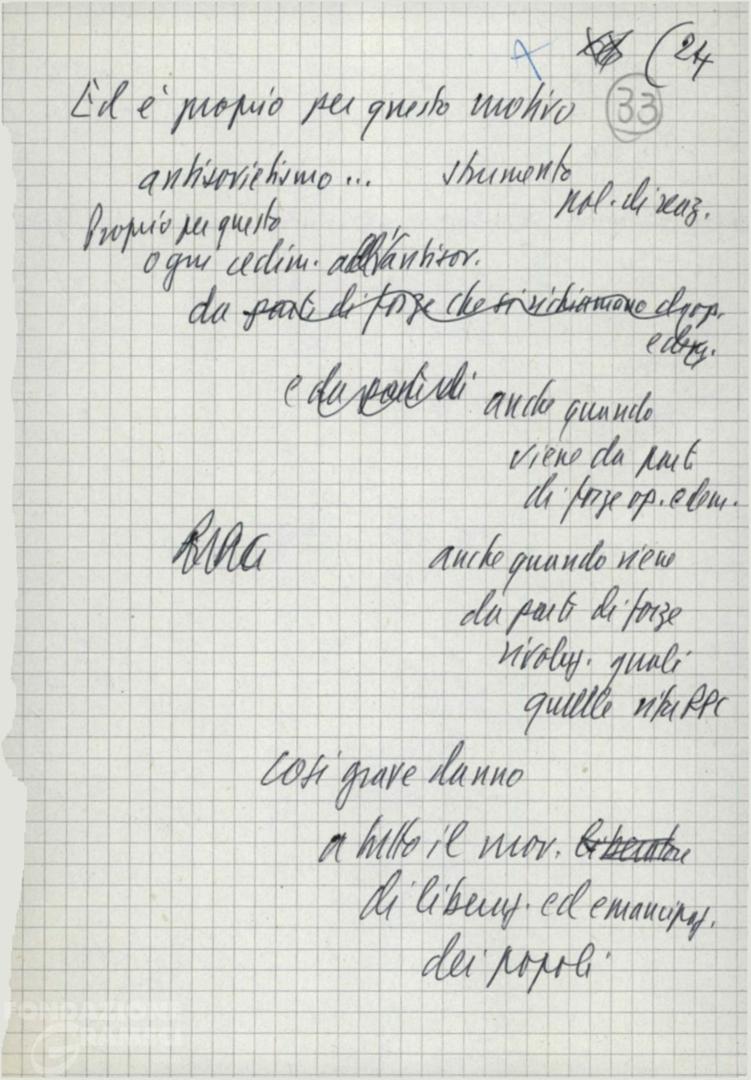 (24
33
Ed è proprio per questo motivo
antisovietismo... strumento
pol. di reaz.
Proprio per questo
ogni cedim. all'antisov.
da parti di forze che si richiamano
e da parti di
anche quando
viene da parti
di forze op. e dem.
anche quando viene
da parti di forze
rivoluz. quali
quelle
così grave danno
a tutto il mov. liberatore
di liberaz. ed emancipaz.
dei popoli
FONDAZIONE
GRAMSCI